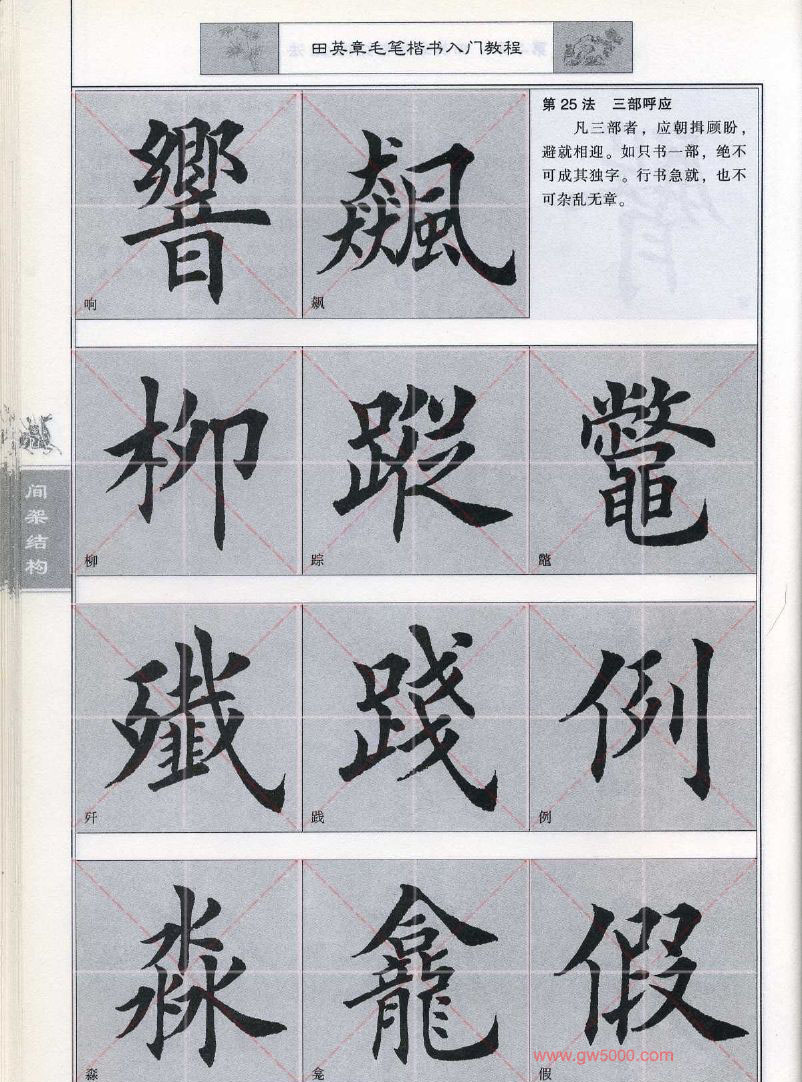 田英章毛笔楷书入门教程
第25法 三部呼应
凡三部者，应朝揖顾盼，
避就相迎。如只书一部，绝不
可成其独字。行书急就，也不
可杂乱无章。
響 飆
响 飙
柳 蹤 鼈
柳 踪 鳖
殲 踐 例
歼 践 例
淼 龕 假
淼 龛 假
间架结构
www.gw5000.com